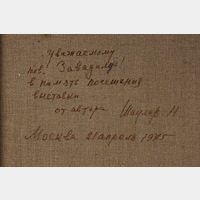 уважаемому
тов. Завадилу!
в память посещения
выставки
от автора
Москва 21 апрель 1975